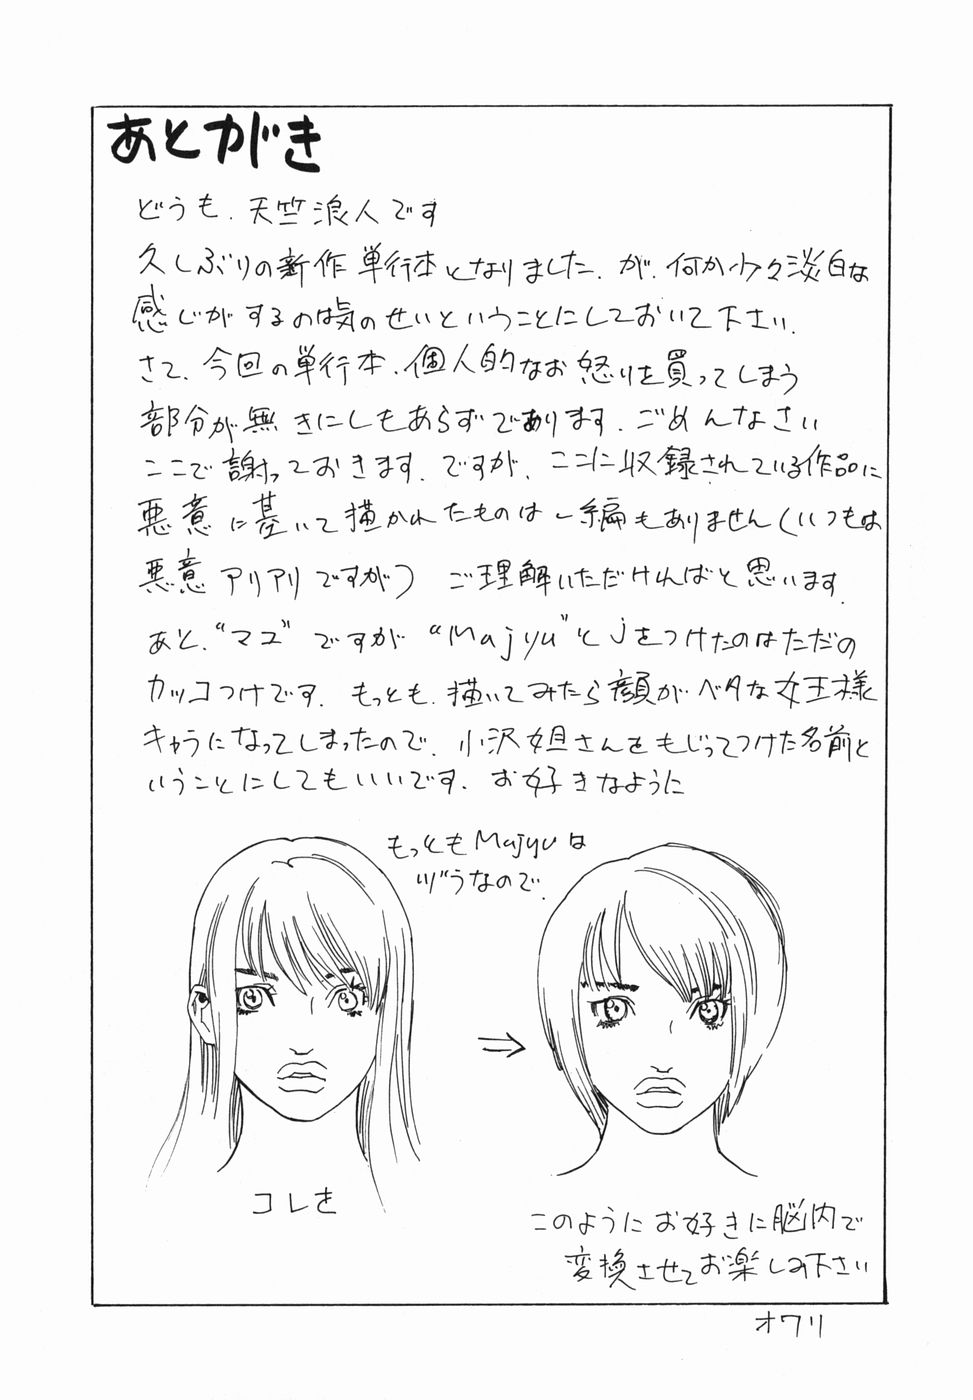 あとがき
どうも、天竺浪人です
久しぶりの新作単行本となりました、が、何か少々淡白な
感じがするのは気のせいということにしておいて下さい、
さて、今回の単行本、個人的なお怒りを買ってしまう
部分が無きにしもあらずであります、ごめんなさい
ここで謝っておきます、ですが、ここに収録されている作品に
悪意に基いて描かれたものは一編もありません(いつもは
悪意アリアリですが) ご理解いただければと思います、
あと、“マユ”ですが“Majyu”とjをつけたのはただの
カッコつけです、もっとも、描いてみたら顔がベタな女王様
キャラになってしまったので、小沢姐さんをもじってつけた名前と
いうことにしてもいいです、お好きなように
もっともMajyuは
ヅラなので、
コレを
→
このようにお好きに脳内で
変換させてお楽しみ下さい
オワリ